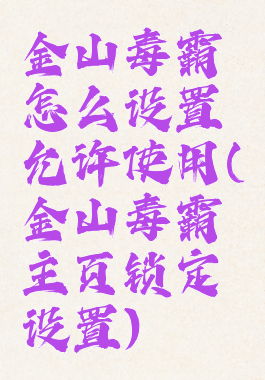 金山毒霸
怎么设置
允许使用(
金山毒霸
主页锁定
设置)